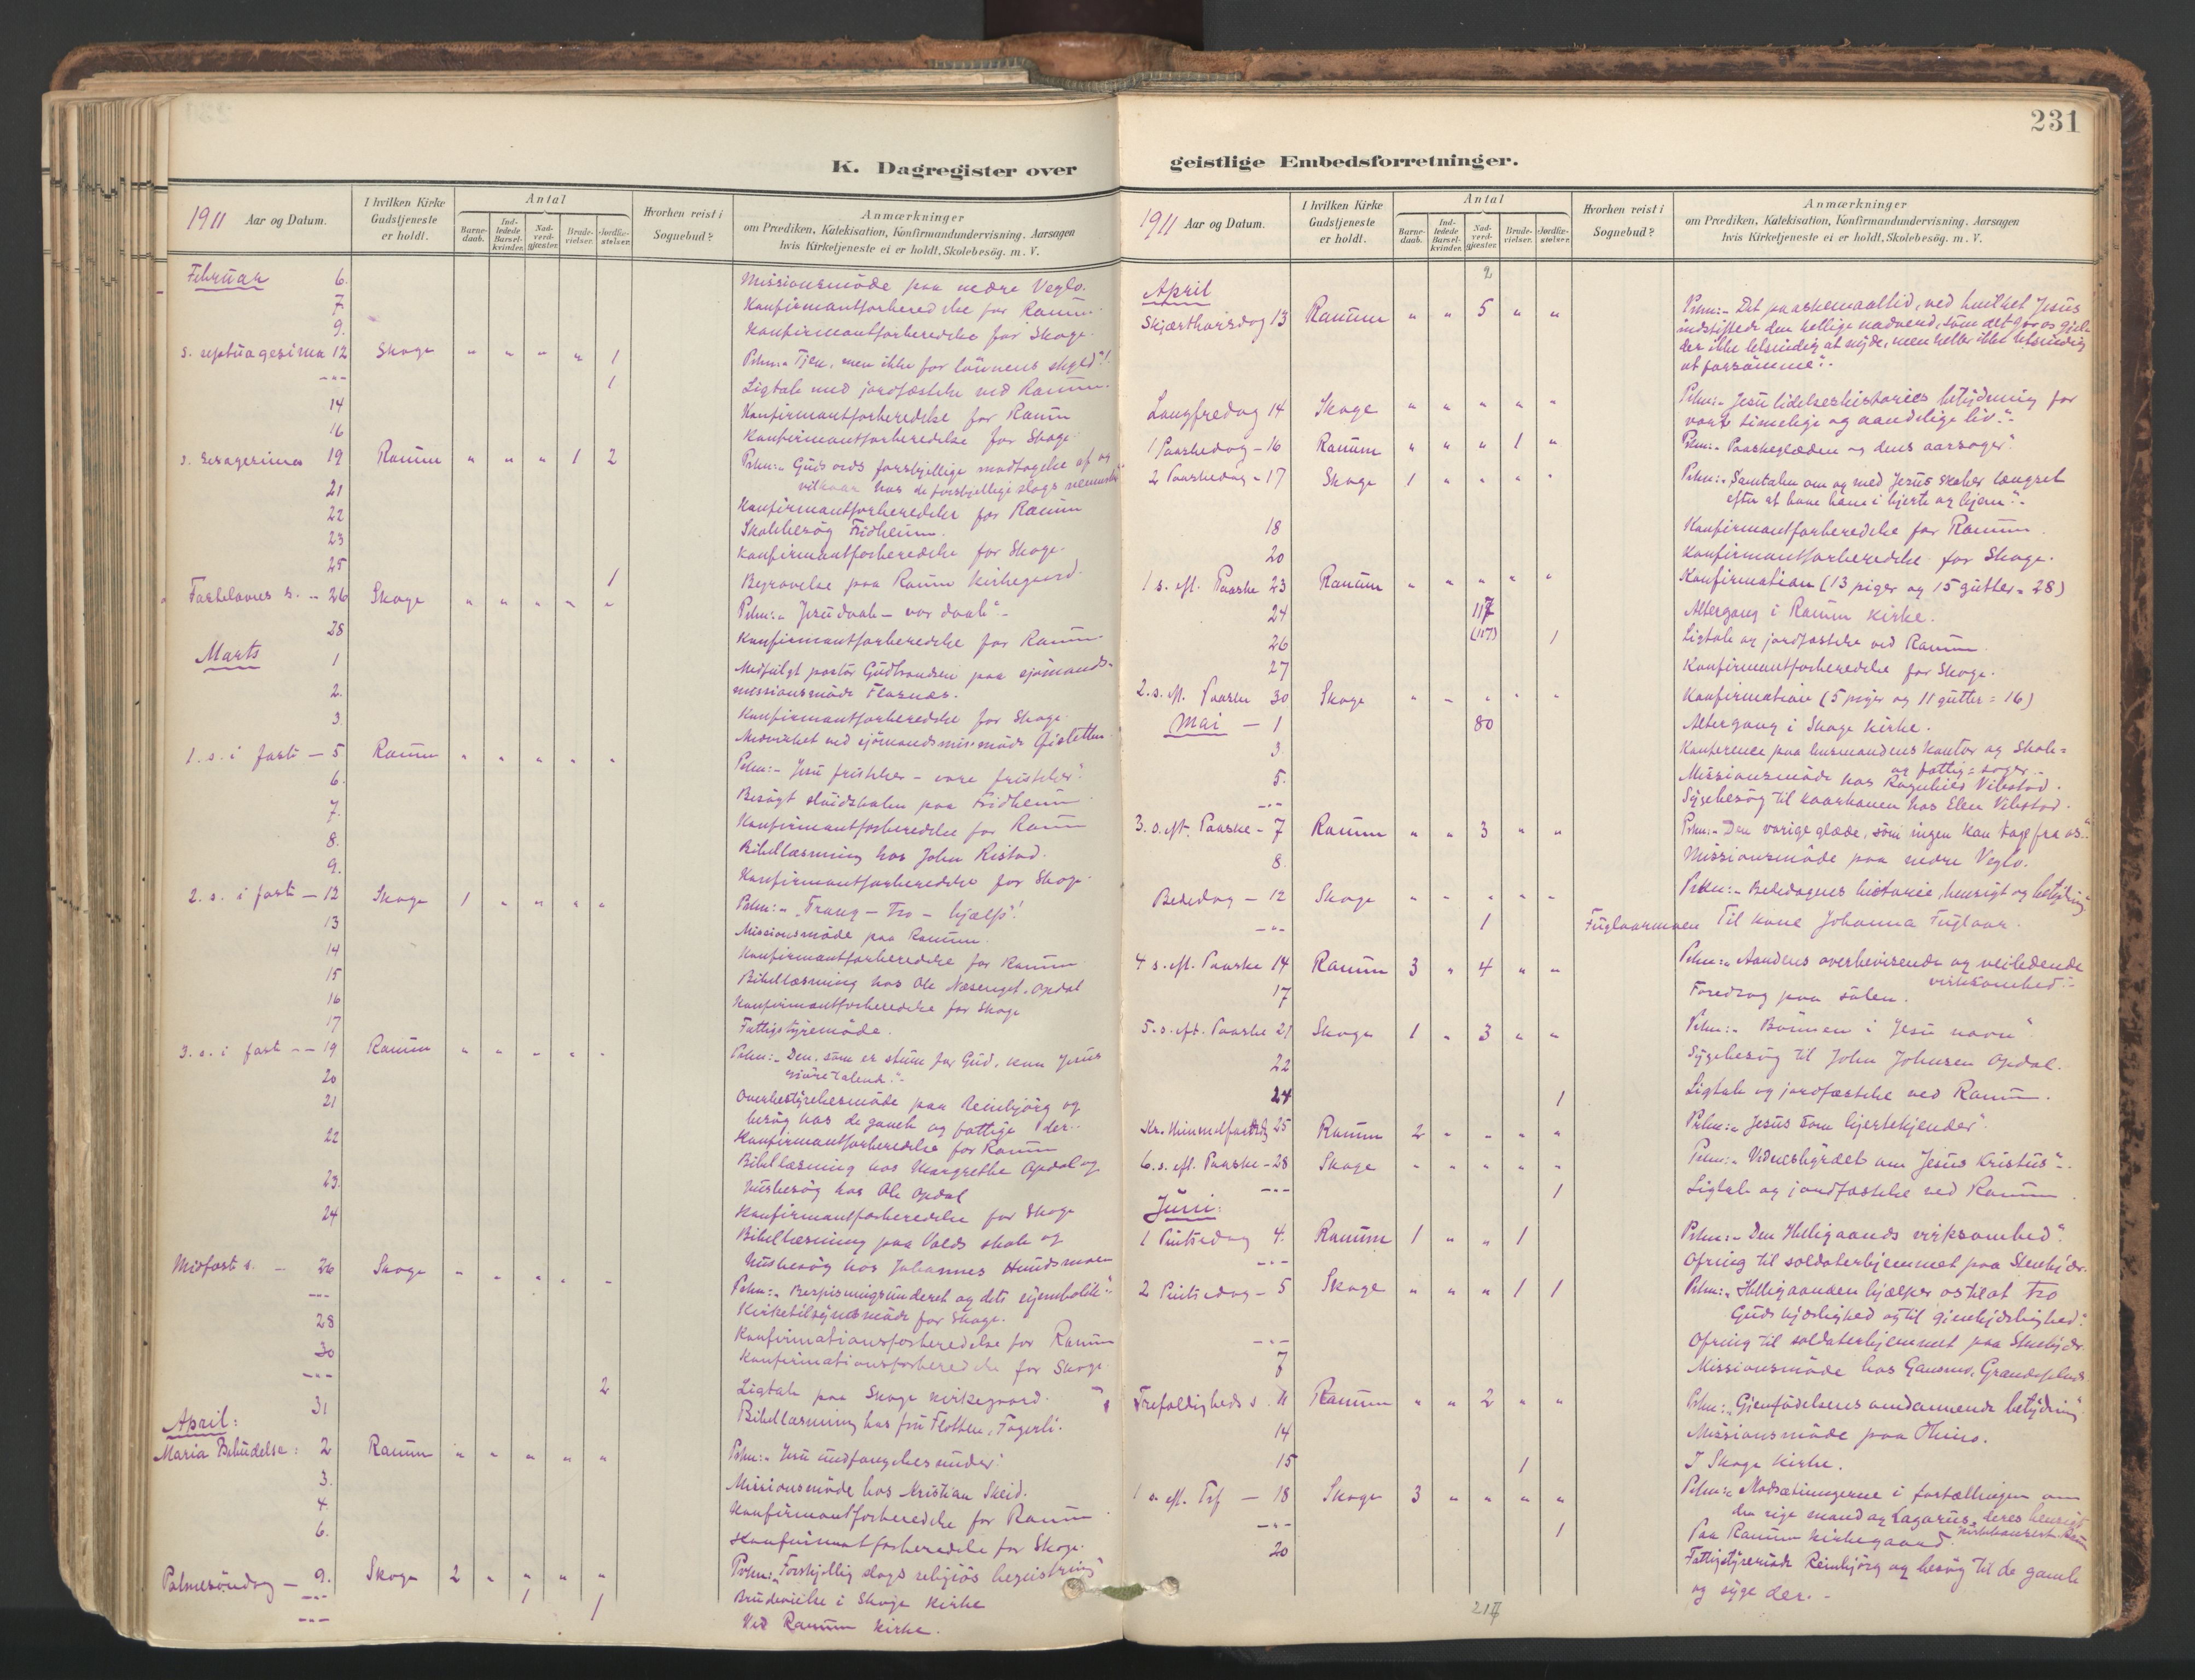 231
K. Dagregister over
geistlige Embedsforretninger.
1911 Aar og Datum.
I hvilken Kirke Gudstjeneste er holdt.
Antal
Barne-daab.
Ind-ledede Barsel-kvinder.
Nad-verd-gjester.
Brude-vielser.
Jordfæ-stelser.
Hvorhen reist i Sognebud?
Anmærkninger
om Prædiken, Katekisation, Konfirmandundervisning, Aarsagen
hvis Kirketjeneste ei er holdt, Skolebesög. m. V.
Februar 6. Missionsmöde paa nedre Veglo.
7 Konfirmantforberedelse for Ranum.
9. Konfirmantforberedelse for Skoge.
s. septuagesima 12 Skoge " " " " 1 Prkn:" Tjen, men ikke for lönnens skyld"!
-"- 1 Ligtale med jordfæstelse ved Ranum.
14 Konfirmantforberedelse for Ranum
16 Konfirmantforberedelse for Skoge.
s. sexagesima 19 Ranum " " " 1 2 Prkn:" Guds ords forskjellige modtagelse af og
vilkaar hos de forskjellige slags mennesker"
21 Konfirmantforberedelse for Ranum
22 Skolebesög Fridheim.
23 Konfirmantforberedelse for Skoge.
25 1 Begravelse paa Ranum kirkegaard.
Fastelavns s. - 26 Skoge " " " " " Prkn:" Jesu daab - vor daab".
28 Konfirmantforberedelse for Ranum.
Marts 1 Medfulgt pastor Gudbrandsen paa sjömands-
missionsmöde Flasnes.
2. Konfirmantforberedelse for Skoge.
3. Medvirket ved sjömandsmis.möde
1. s. i faste - 5 Ranum " " " " " Prkn:" Jesu fristelser - vore fristelser".
6. Besögt slöidskolen paa Fridheim
7. Konfirmantforberedelse for Ranum
8. Bibellæsning hos John Ristad.
9. Konfirmantforberedelse for Skoge.
2. s. i faste - 12 Skoge 1 " " " " Prkn:" "Trang - tro - hjælp"!
13 Missionsmöde paa Ranum.
14 Konfirmantforberedelse for Ranum
15 Bibellæsning hos Ole Næsenget, Opdal
16 Konfirmantforberedelse for Skoge
17 Fattigstyremöde.
3. s. i faste - 19 Ranum " " " " " Prkn:" Den, som er stum for Gud, kan Jesus
gjöre talende".
20 Overbestyrelsesmöde paa Reinbjörg og
21 besög hos de gamle og fattige der.
22 Konfirmantforberedelse for Ranum
Bibellæsning hos Margrethe Opdal og
23. Husbesög hos Ole Opdal
24 Konfirmantforberedelse for Skoge
Bibellæsning paa Valds skole og
Husbesög hos Johannes Hundsmoen
Midfaste s. - 26 Skoge " " " " " Prkn:" Bespisningsunderet og dets symbolik".
-"- Kirketilsynsmöde for Skoge.
28 Konfirmationsforberedelse for Ranum
30 Konfirmationsforberedelse for Skoge.
-"- 2 Ligtale paa Skoge kirkegaard.
31 Bibellæsning hos fru Flotten, Fagerli.
April:
Maria Bebudelse: 2 Ranum " " " " " Prkn:" Jesu undfangelsesunder".
3. Missionsmöde hos Kristian Skeid.
4 Konfirmantforberedelse for Ranum
6. Konfirmantforberedelse for Skoge.
Palmesöndag - 9. Skoge 2 " " " " Prkn:" Forskjellig slags religiös begeistring"
-"- 1 Brudevielse i Skoge kirke
-"- 1 Ved Ranum kirke.
1911 Aar og Datum.
I hvilken Kirke Gudstjeneste er holdt.
Antal
Barne-daab.
Ind-ledede Barsel-kvinder.
Nad-verd-gjester.
Brude-vielser.
Jordfæ-stelser.
Hvorhen reist i Sognebud?
Anmærkninger
om Prædiken, Katekisation, Konfirmandundervisning, Aarsagen
hvis Kirketjeneste ei er holdt, Skolebesög. m. V.
2
April
Skjærthorsdag 13 Ranum " " 5 " " Prkn:" Det paaskemaaltid, ved hvilket Jesus
indstiftede den hellige nadverd, som det
der ikke letsindig at nyde, men heller ikke letsindig
at forsömme".
Langfredag 14 Skoge " " " " " Prkn:" Jesu lidelseshistories betydning for
vort timelige og aandelige liv".
1 Paaskedag - 16 Ranum " " " 1 " Prkn:" Paaskeglæden og dens aarsager".
2 Paaskedag - 17 Skoge 1 " " " " Prkn:" Samtalen om og med Jesus skaber længsel
efter at have ham i hjerte og hjem".
18 Konfirmantforberedelse for Ranum.
20 Konfirmantforberedelse for Skoge.
1 s. eft. Paaske 23 Ranum " " " " " Konfirmation (13 piger og 15 gutter = 28)
24 117 Altergang i Ranum kirke.
26 (117) 1 Ligtale og jordfæstelse ved Ranum.
27 Konfirmantforberedelse for Skoge.
2. s. eft. Paaske 30 Skoge " " " " " Konfirmation (5 piger og 11 gutter = 16)
Mai - 1 80 Altergang i Skoge kirke.
3. Konference paa lensmandens kontor og Skole=
og fattig=sager.
5. Missionsmöde hos Ragnhild Vibstad.
-"- Sygebesög til kaarkonen hos Elen Vibstad.
3. s. eft. Paaske - 7 Ranum " " 3 " " Prkn:" Den varige glæde, som ingen kan tage fra os".
8. Missionsmöde paa nedre Veglo.
Bededag - 12 Skoge " " " " " Prkn:" Bededagens historie, hensigt og betydning"
-"- 1 Fuglaarmoen Til kone Johanna Fuglaar.
4 s. eft. Paaske 14 Ranum 3 " 4 " " Prkn:" Aandens overbevisende og veiledende
virksomhed".
17 Foredrag paa salen.
5. s. eft. Paaske 21 Skoge 1 " 3 " " Prkn:" Bönnen i Jesu navn".
22 Sygebesög til John Johnsen Opdal.
24 1 Ligtale og jordfæstelse ved Ranum.
Kr. Himmelfartsdg 25 Ranum 2 " " " " Prkn:" Jesus som hjertekjender".
6. s. eft. Paaske - 28 Skoge " " " " " Prkn:" Vidnesbyrdet om Jesus Kristus".
-"- 1 Ligtale og jordfæstelse ved Ranum.
Juni:
1 Pintsedag 4. Ranum 1 " " 1 Prkn:" Den Helligaands virksomhed".
-"- Ofring til soldaterhjemmet paa Stenkjær.
2 Pintsedag - 5 Skoge " " " 1 1 Prkn:" Helligaanden hjælper os til at tro
Guds kjærlighed og til gjenkjærlighed".
-"- Ofring til soldaterhjemmet paa Stenkjær.
7 Missionsmöde hos
Trefoldigheds s. 11 Ranum " " 2 " " Prkn:" Gjenfödelsens omdannende betydning"
14 Missionsmöde paa Himo.
15 1 I Skoge kirke.
1 s. eft. Trf - 18 Skoge 3 " " " " Prkn:" Modsætningerne i fortællingen om
den rige mand og Lazarus, deres hensigt
-"- 1 Paa Ranum kirkegaard.
20 Fattigstyremöde Reinbjörg og besög til de gamle
og syge der.
217